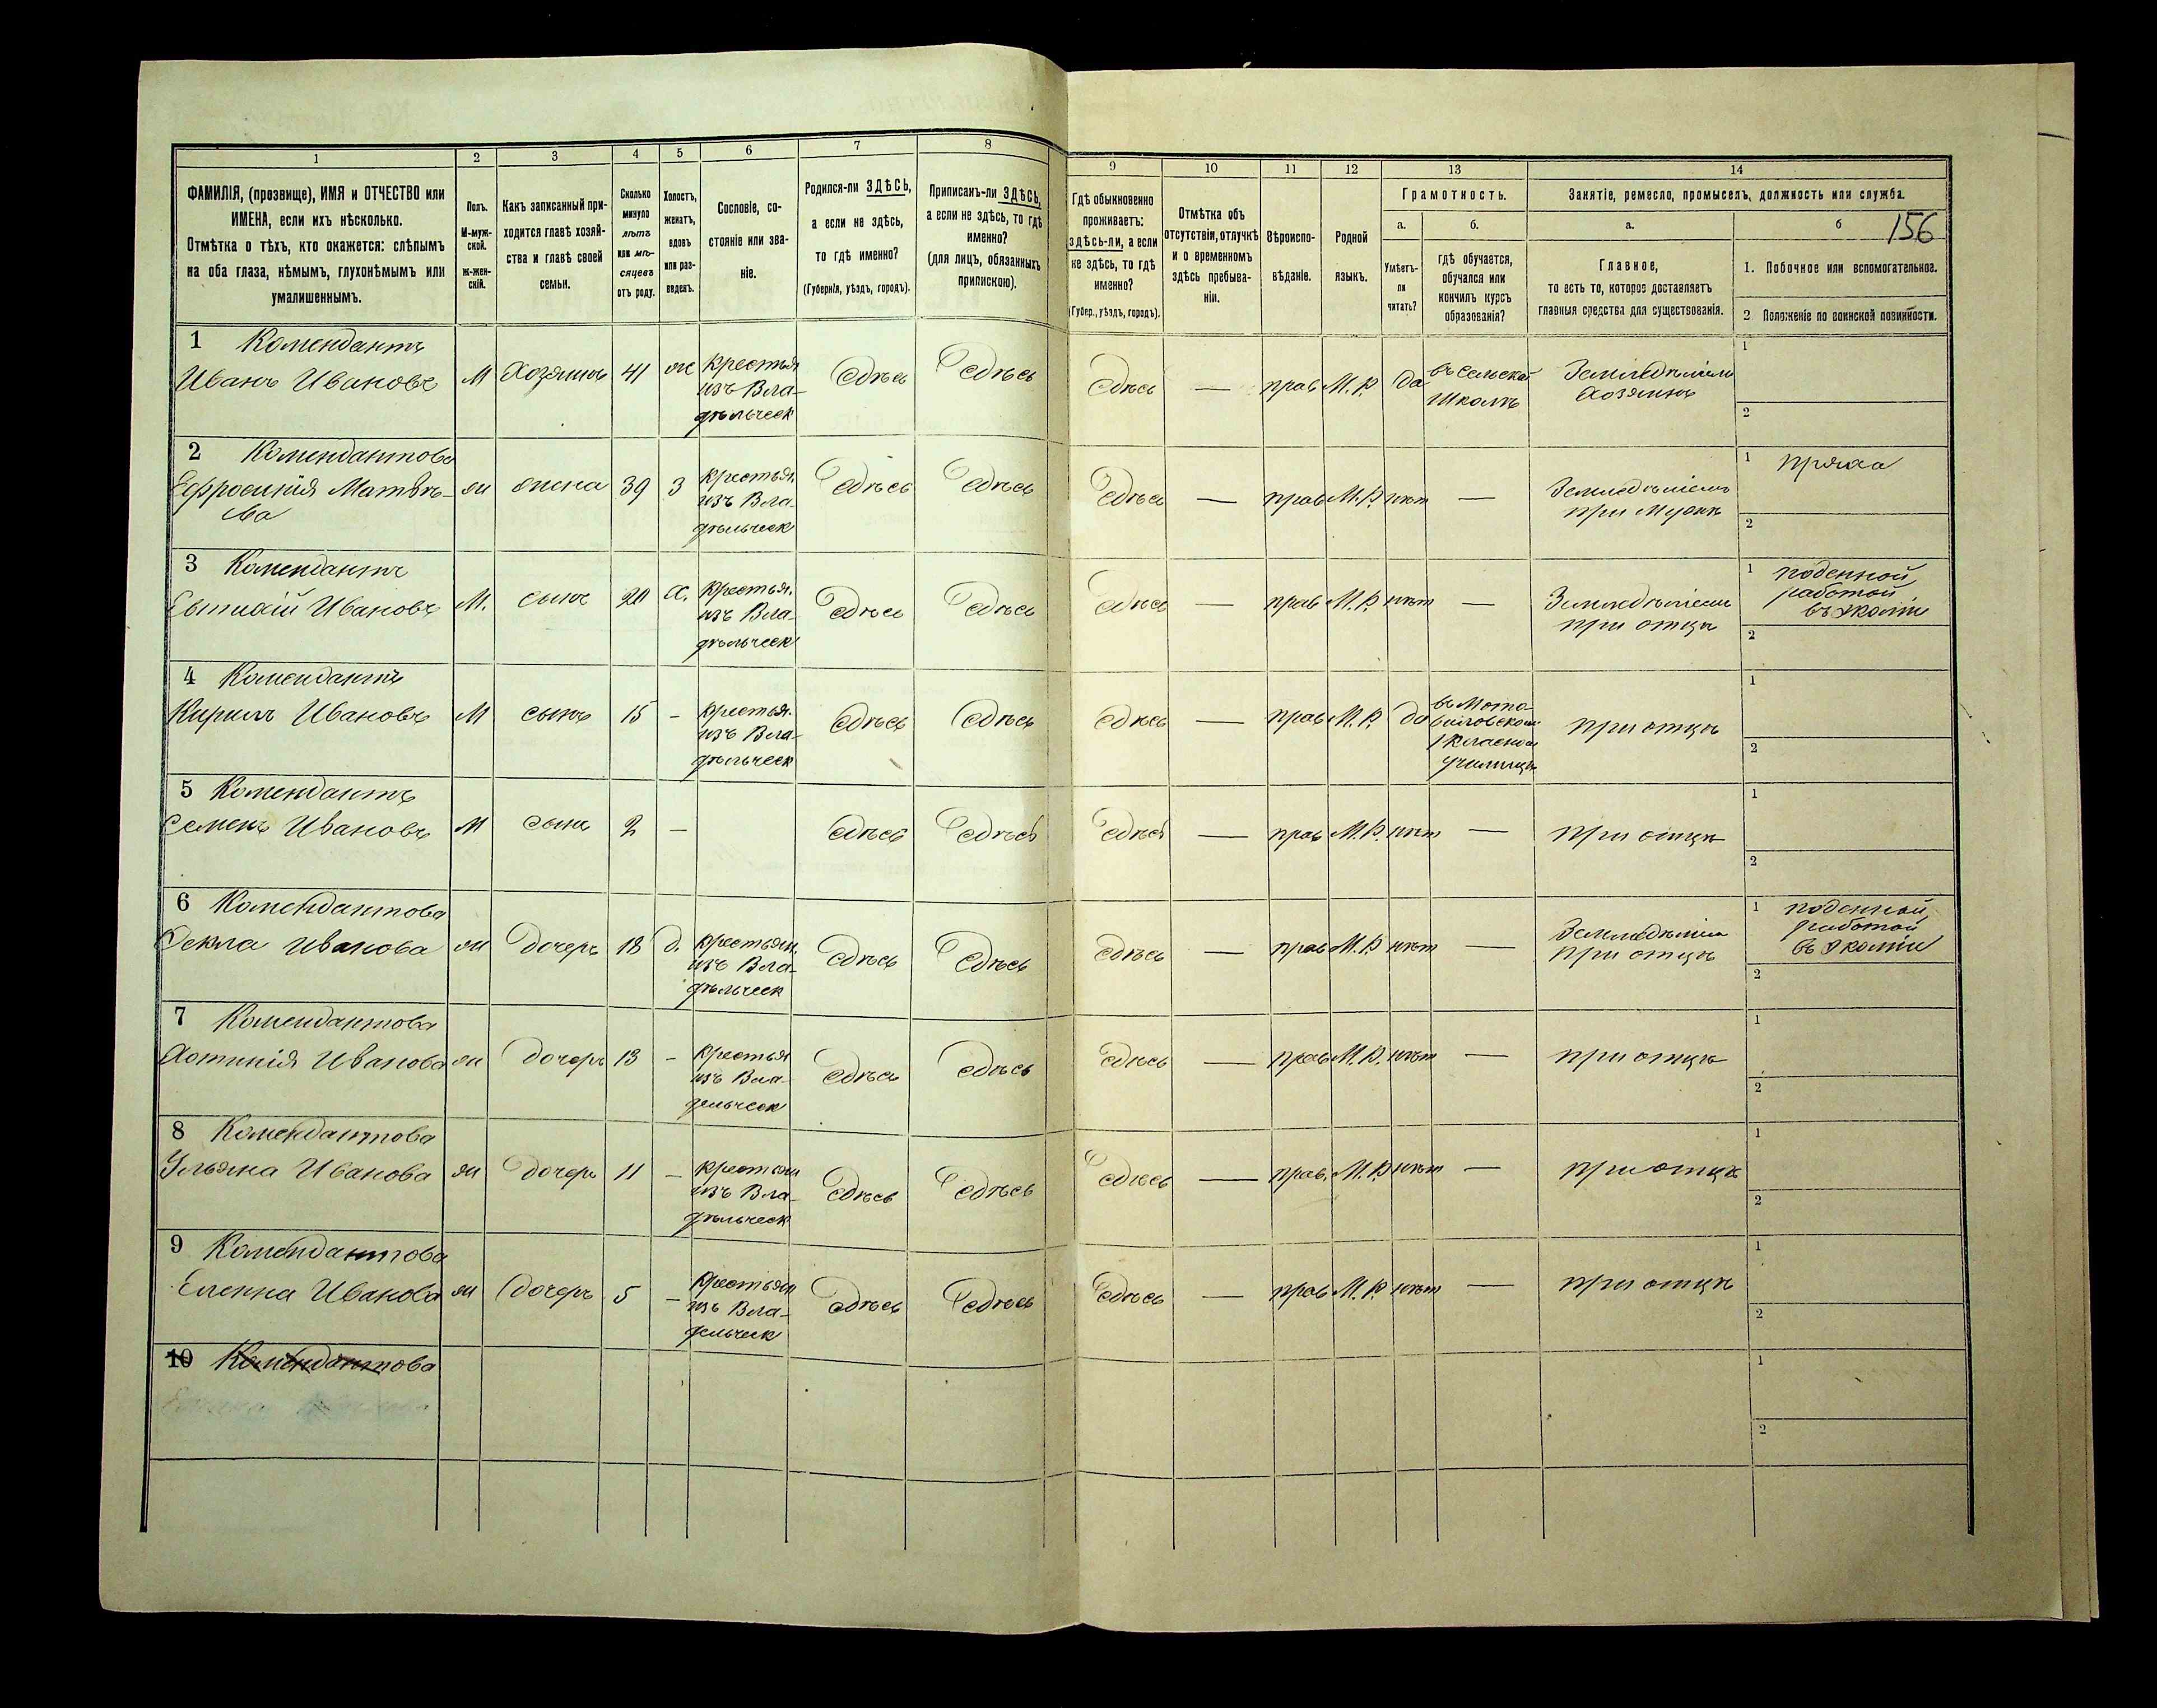 1
2
3
4
5
6
7
8
9
10
11
12
13
14
ФАМИЛІЯ, (прозвище), ИМЯ и ОТЧЕСТВО или
ИМЕНА, если ихъ нѣсколько.
Отмѣтка о тѣхъ, кто окажется: слѣпымъ
на оба глаза, нѣмымъ, глухонѣмымъ или
умалишеннымъ.
Полъ.
М-муж-
ской.
ж-жен-
скій.
Какъ записанный при-
ходится главѣ хозяй-
ства и главѣ своей
семьи.
Сколько
минуло
лѣтъ
или мѣ-
сяцевъ
отъ роду.
Холостъ,
женатъ,
вдовъ
или раз-
веденъ.
Сословіе, со-
стояніе или зва-
ніе.
Родился-ли ЗДѢСЬ,
а если не здѣсь,
то гдѣ именно?
(Губернія, уѣздъ, городъ).
Приписанъ-ли ЗДѢСЬ,
а если не здѣсь, то гдѣ
именно?
(для лицъ, обязанныхъ
припискою).
Гдѣ обыкновенно
проживаетъ:
здѣсь-ли, а если
не здѣсь, то гдѣ
именно?
(Губер., уѣздъ, городъ).
Отмѣтка объ
отсутствіи, отлучкѣ
и о временномъ
здѣсь пребыва-
ніи.
Вѣроиспо-
вѣданіе.
Родной
языкъ.
Грамотность.
а.
б.
Умѣетъ-
ли
читать?
гдѣ обучается,
обучался или
кончилъ курсъ
образованія?
Занятіе, ремесло, промыселъ, должность или служба.
а.
б
156
Главное,
то есть то, которое доставляетъ
главныя средства для существованія.
1. Побочное или вспомогательное.
2 Положеніе по воинской повинности.
1 Комендантъ
Иванъ Ивановъ
М
Хозяинъ
41
ж
крестья
изъ Вла-
дѣльческ
Здѣсь
Здѣсь
Здѣсь
—
прав
М.Р.
да
въ сельской
школѣ
Земледѣліемъ
Хозяинъ
1
2
2 Комендантова
Ефросинія Матвѣ-
ева
ж
жена
39
З
крестья.
изъ Вла-
дѣльческ
Здѣсь
Здѣсь
Здѣсь
—
прав
М.Р.
нѣт
—
Земледѣліемъ
при мужѣ
1 пряха
2
3 Комендантъ
Евтихій Ивановъ
М.
сынъ
20
Х.
крестья.
изъ Вла-
дѣльческ
Здѣсь
Здѣсь
Здѣсь
—
прав
М.Р.
нѣт
—
Земледѣліемъ
при отцѣ
1 поденной
работой
въ Экомiи
2
4 Комендантъ
Кирилъ Ивановъ
М
сынъ
15
-
крестья.
изъ Вла-
дѣльческ
Здѣсь
Здѣсь
Здѣсь
—
прав
М.Р.
да
1 класном
училищѣ
при отцѣ
1
2
5 Комендантъ
Семенъ Ивановъ
М
сынъ
2
—
Здѣсь
Здѣсь
Здѣсь
—
прав
М.Р.
нѣт
—
при отцѣ
1
2
6 Комендантова
Фекла Иванова
ж
Дочерь
18
д.
крестьян.
изъ Вла-
дѣльческ
Здѣсь
Здѣсь
Здѣсь
—
прав
М.Р.
нѣт
—
Земледѣліем
при отцѣ
1 поденной
работой
въ Экомiи
2
7 Комендантова
Хотинія Иванова
ж
дочерь
13
-
крестья
изъ Вла-
дельческ
Здѣсь
Здѣсь
Здѣсь
—
прав
М.Р.
нѣт
—
при отцѣ
1
2
8 Комендантова
Ульяна Иванова
ж
дочерь
11
-
крестьян
изъ Вла-
дѣльческ
Здѣсь
Здѣсь
Здѣсь
—
прав.
М.Р.
нѣт
—
при отцѣ
1
2
9 Комендантова
Еленна Иванова
ж
дочерь
5
-
крестьян
изъ Вла-
дельческ
Здѣсь
Здѣсь
Здѣсь
—
прав
М.Р.
нѣт
—
при отцѣ
1
2
10 Комендантова
1
2